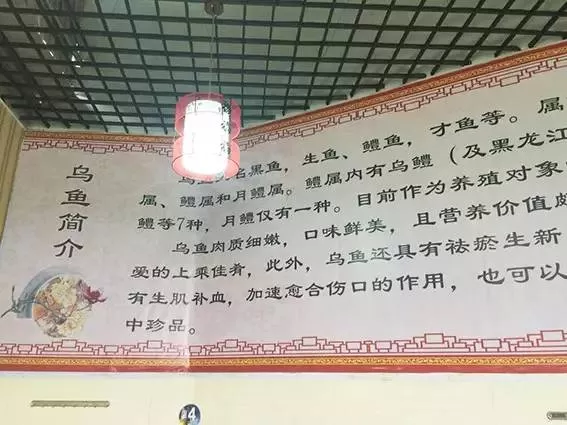 乌鱼简介
名黑鱼，生鱼、鳢鱼，才鱼等。属
属、鳢属和月鳢属。鳢属内有乌鳢（及黑龙江
鳢等7种，月鳢仅有一种。目前作为养殖对象
乌鱼肉质细嫩，口味鲜美，且营养价值颇
爱的上乘佳肴，此外，乌鱼还具有祛瘀生新
有生肌补血，加速愈合伤口的作用，也可以
中珍品。
4